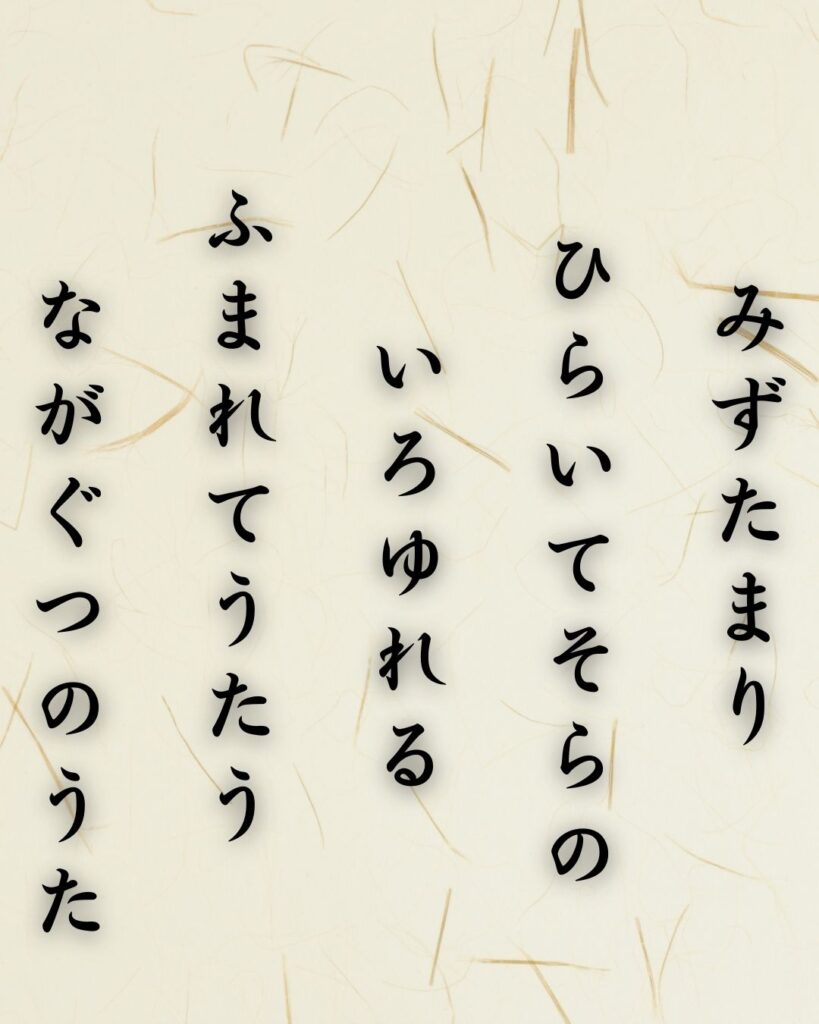 みずたまり
ひらいてそらの
いろゆれる
ふまれてうたう
ながぐつのうた